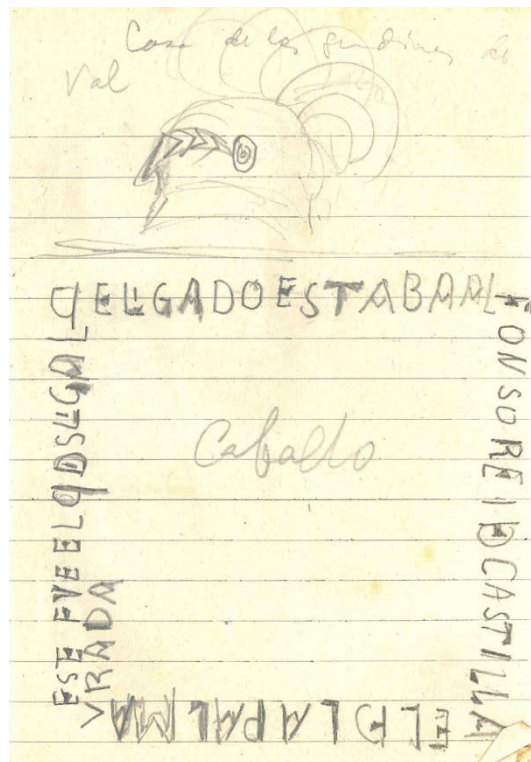 Casa de los de
Val
QELIGADOESTABAAL
FONSOREIDCASTILLA
ELDLAPALMA
ESE FVEELQDSLIGAL
VRADA
Caballo